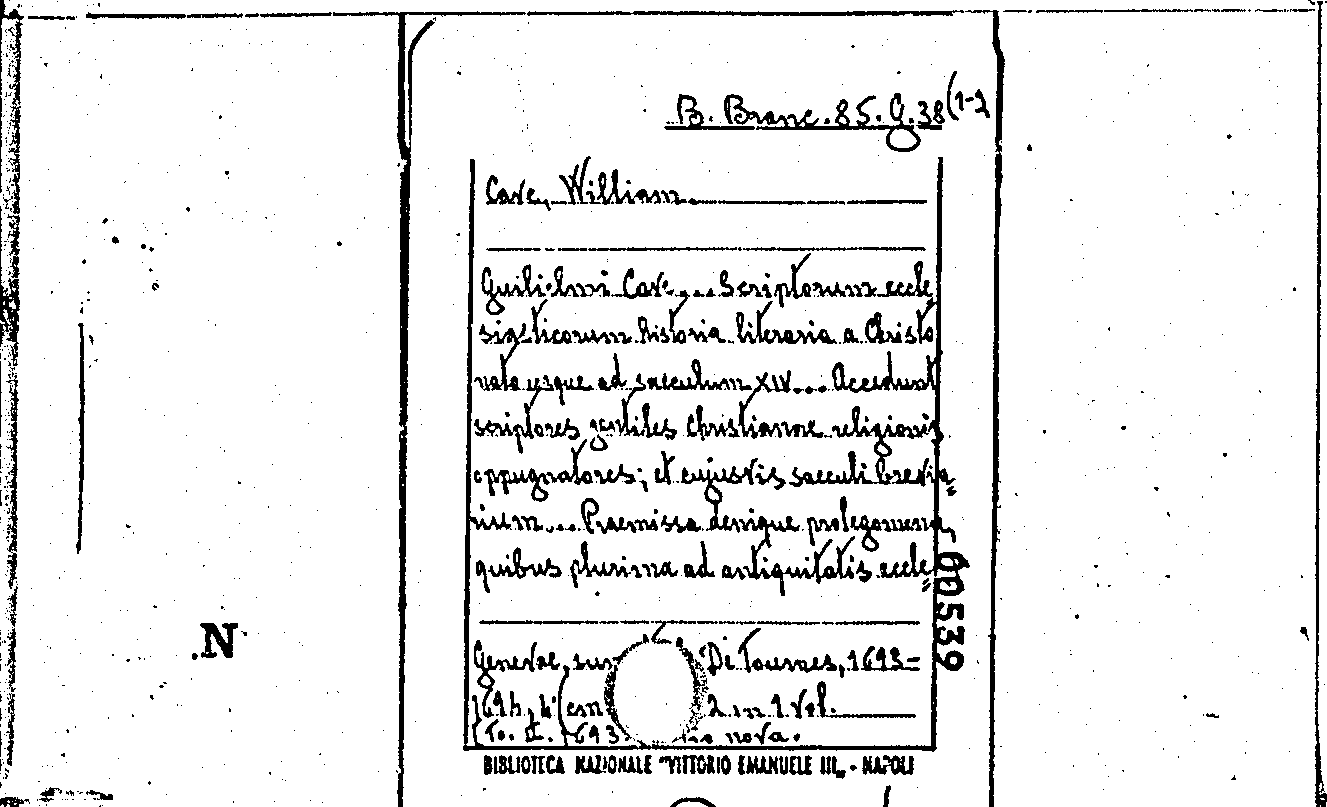 B. Branc. 85. G. 38 (1-2
Cave, William.
Guilielmi Cave... Scriptorum eccle
siasticorum historia literaria a Christo
nato usque ad saeculum XIV... Accedunt
scriptores gentiles christianae religionis
oppugnatores; et cujusvis saeculi brevia=
rium... Praemissa denique prolegomena,
quibus plurima ad antiquitatis eccle=
00539
N.
Genevae, sum De Tournes, 1693=
1694, 4° (em 2 in 1 vol.
(To. II. 1693. nova.
BIBLIOTECA NAZIONALE "VITTORIO EMANUELE III„ - NAPOLI